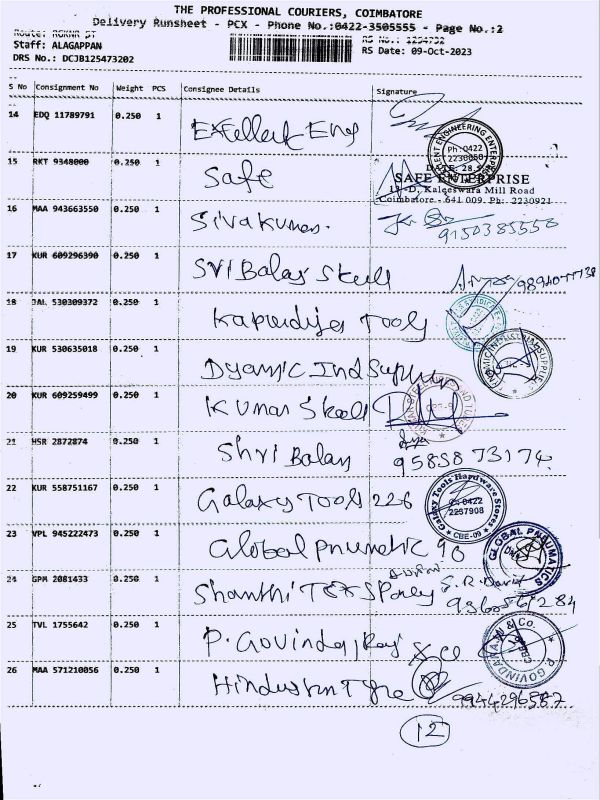 THE PROFESSIONAL COURIERS, COIMBATORE
Delivery Runsheet - PCX - Phone No.:0422-3505555 - Page No.:2
Staff: ALAGAPPAN
RS Date: 09-Oct-2023
DRS No.: DCJB125473202
S No Consignment No Weight PCS Consignee Details Signature
14 EDQ 11789791 0.250 1 Excellent Eng
Ph:0422
2230050
15 RKT 9348000 0.250 1 Safe
SAFE ENTERPRISE
Kaleeswara Mill Road
Coimbatore - 641 009. Ph: 2230921
16 MAA 943663550 0.250 1 Sivakumar.
9150385558
17 KUR 609296390 0.250 1 Sri Balaji Steell
18 JAL 530309372 0.250 1 Tools
19 KUR 530635018 0.250 1 Dyamic Ind Supply
20 KUR 609259499 0.250 1 Kumar Steell
21 HSR 2872874 0.250 1 Shri Balaji
95858 73174
22 KUR 558751167 0.250 1 Galaxy Tools 226
Galaxy Tools Hardware Stores
Ph:0422
2237908
CBE-09
23 VPL 945222473 0.250 1 Global pnumetic 90
GLOBAL PNUMATICS
24 GPM 2081433 0.250 1 Shanthi
S.R. David
25 TVL 1755642 0.250 1 P. Govindaraj & Co
P. GOVINDARAJ & CO.
26 MAA 571210056 0.250 1 Hindustan Tyre
9944296587
12